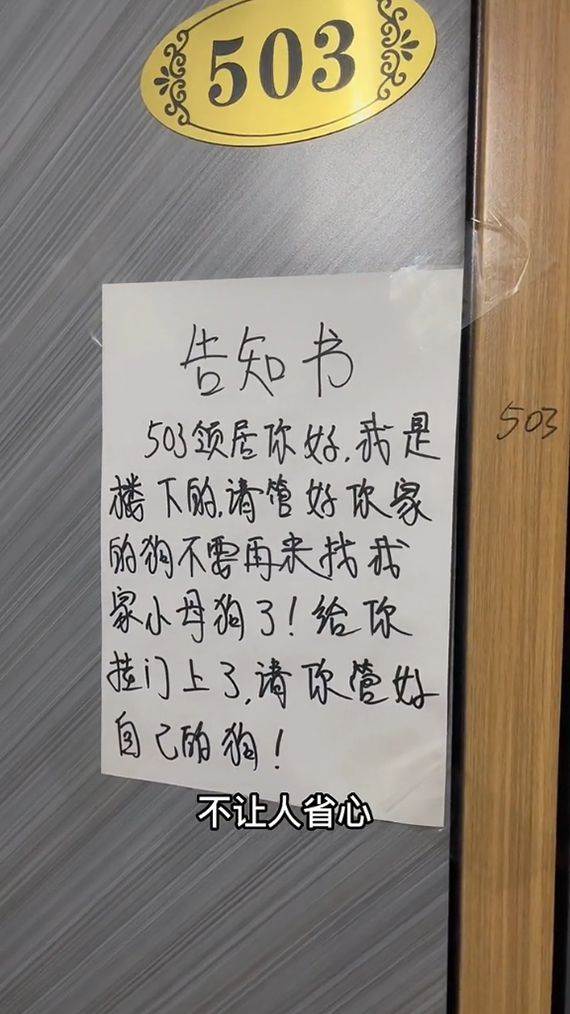 503
告知书
503领居你好,我是
楼下的,请管好你家
的狗不要再来找我
家小母狗了!给你
挂门上了,请你管好
自己的狗!
503
不让人省心